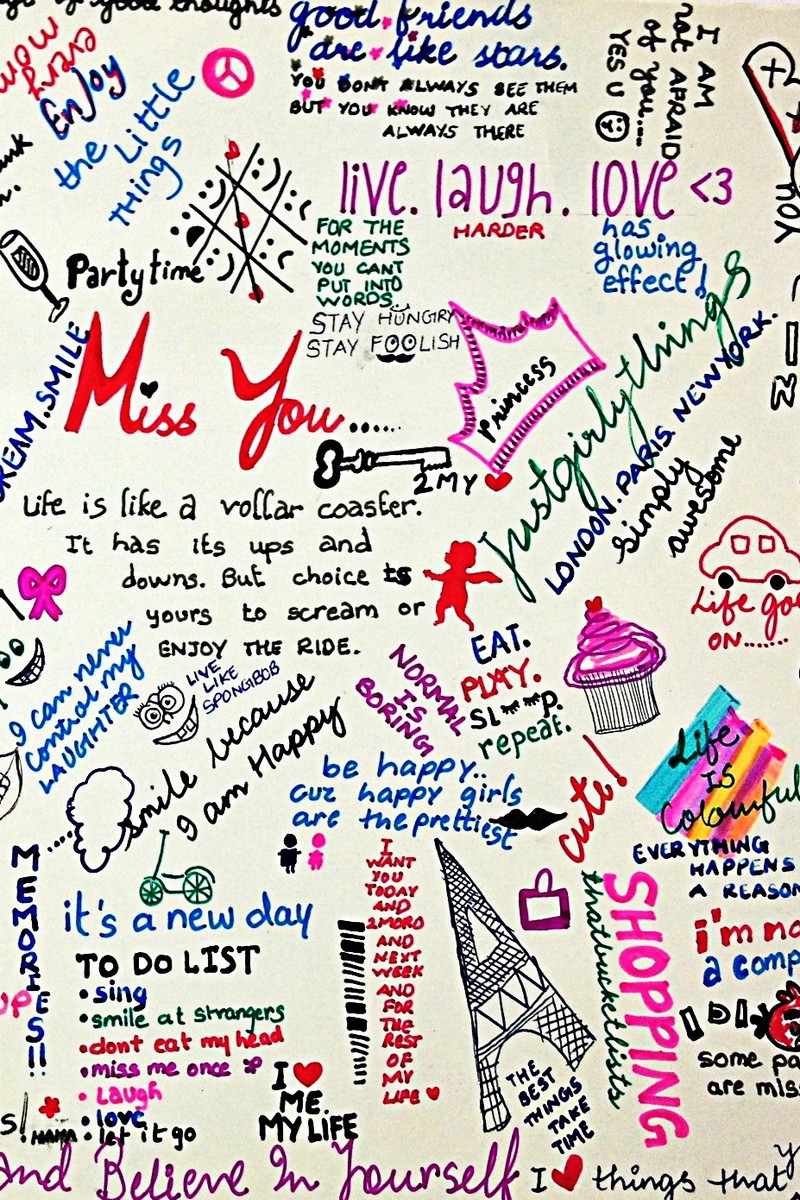 good thoughts
good friends
are like stars.
YOU DON'T ALWAYS SEE THEM
BUT YOU KNOW THEY ARE
ALWAYS THERE
I AM
not AFRAID
of you....
YES U
every
mom
Enjoy
the Little
THINGS
live. laugh. love <3
HARDER
has
glowing
effect!
FOR THE
MOMENTS
YOU CANT
PUT INTO
WORDS..
Party time
STAY HUNGRY
STAY FOOLISH
DREAM.SMILE
Miss You......
princess
2 MY
Justgirlythings
LONDON.PARIS.NEWYORK.
simply
awesome
Life is like a rollar coaster.
It has its ups and
downs. But choice is
yours to scream or
ENJOY THE RIDE.
Life goes
ON.......
I can never
control my
LAUGHTER
LIVE
LIKE
SPONGIBOB
NORMAL
IS
BORING
EAT.
PLAY.
SL**P.
repeat.
smile because
I am Happy
be happy..
cuz happy girls
are the prettiest
cute!
Life
IS
Colourful
EVERYTHING
HAPPENS
A REASON
MEMORIES!!
it's a new day
TO DO LIST
• sing
• smile at strangers
• dont eat my head
• miss me once
• Laugh
• love
• let it go
I
WANT
YOU
TODAY
AND
2MORO
AND
NEXT
WEEK
AND
FOR
THE
REST
OF
MY
LIFE
SHOPPING
thatbucketlists
i'm no
a comp
some pa
are miss
I ❤
ME.
MY LIFE
THE
BEST
THINGS
TAKE
TIME
HAHA
And Believe In Yourself
I ❤ things that